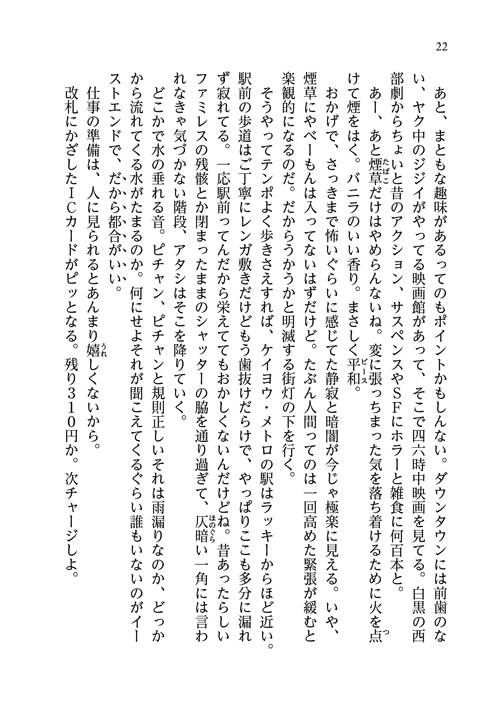 22
あと、まともな趣味があるってのもポイントかもしんない。ダウンタウンには前歯のな
い、ヤク中のジジイがやってる映画館があって、そこで四六時中映画を見てる。白黒の西
部劇からちょいと昔のアクション、サスペンスやSFにホラーと雑食に何百本と。
あー、あと煙草だけはやめらんないね。変に張っちまった気を落ち着けるために火を点
けて煙をはく。バニラのいい香り。まさしく平和。
おかげで、さっきまで怖いぐらいに感じてた静寂と暗闇が今じゃ極楽に見える。いや、
煙草にやべーもんは入ってないはずだけど。たぶん人間ってのは一回高めた緊張が緩むと
楽観的になるのだ。だからうかうかと明滅する街灯の下を行く。
そうやってテンポよく歩きさえすれば、ケイヨウ・メトロの駅はラッキーからほど近い。
駅前の歩道はご丁寧にレンガ敷きだけどもう歯抜けだらけで、やっぱりここも多分に漏れ
ず寂れてる。一応駅前ってんだから栄えててもおかしくないんだけどね。昔あったらしい
ファミレスの残骸とか閉まったままのシャッターの脇を通り過ぎて、仄暗い一角には言わ
れなきゃ気づかない階段、アタシはそこを降りていく。
どこかで水の垂れる音。ピチャン、ピチャンと規則正しいそれは雨漏りなのか、どっか
から流れてくる水がたまるのか。何にせよそれが聞こえてくるぐらい誰もいないのがイー
ストエンドで、だから都合がいい。
仕事の準備は、人に見られるとあんまり嬉しくないから。
改札にかざしたICカードがピッとなる。残り310円か。次チャージしよ。